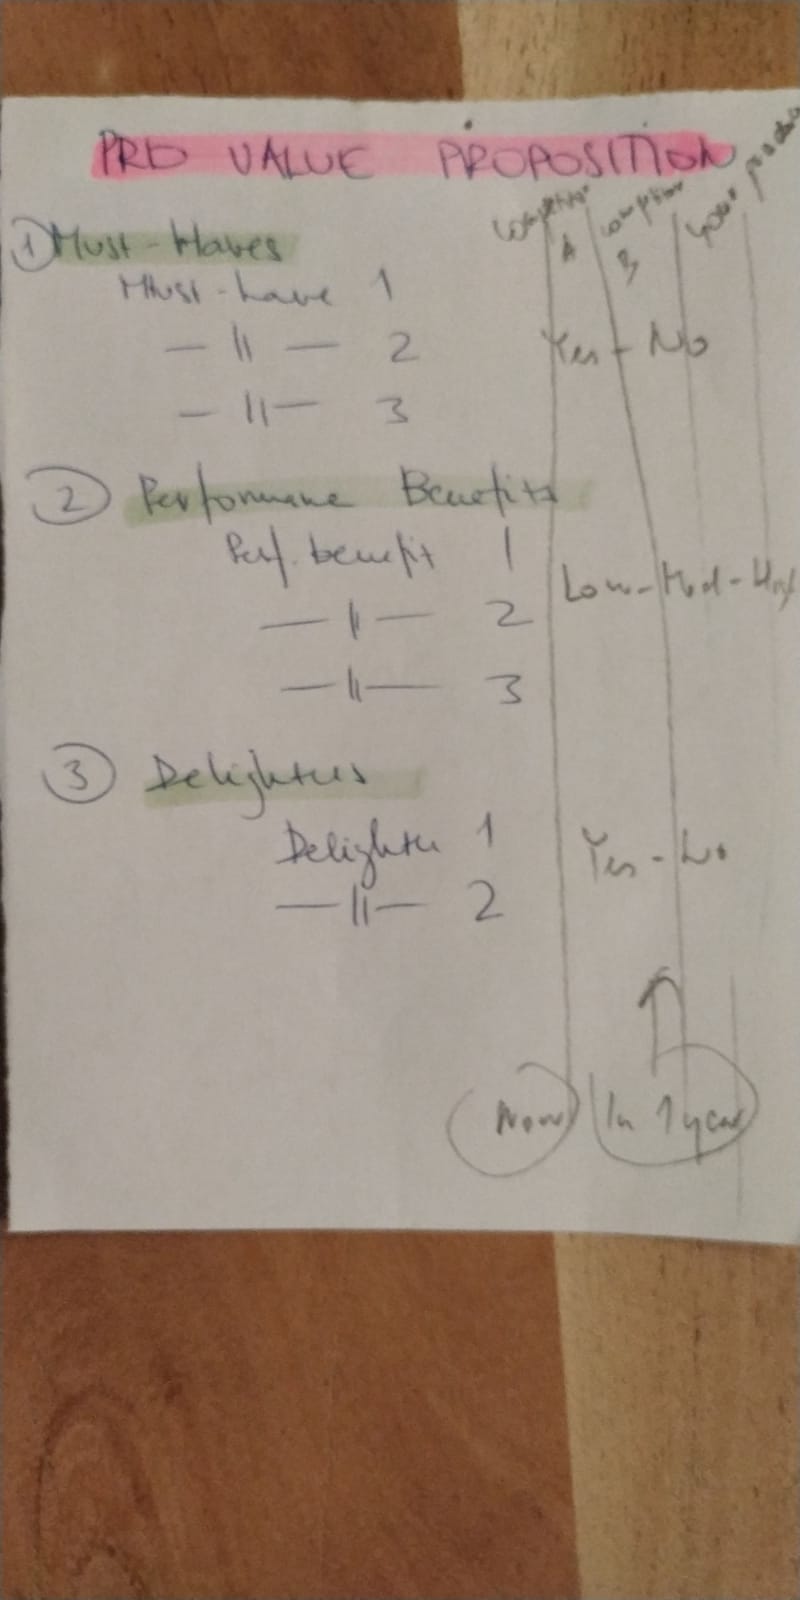 PRD VALUE PROPOSITION
Competitor A
Competitor B
Your product
① Must-Haves
Must-have 1
— || — 2
— || — 3
Yes - No
② Performance Benefits
Perf. benefit 1
— || — 2
— || — 3
Low - Med - High
③ Delighters
Delighter 1
— || — 2
Yes - No
Now
In 1 year